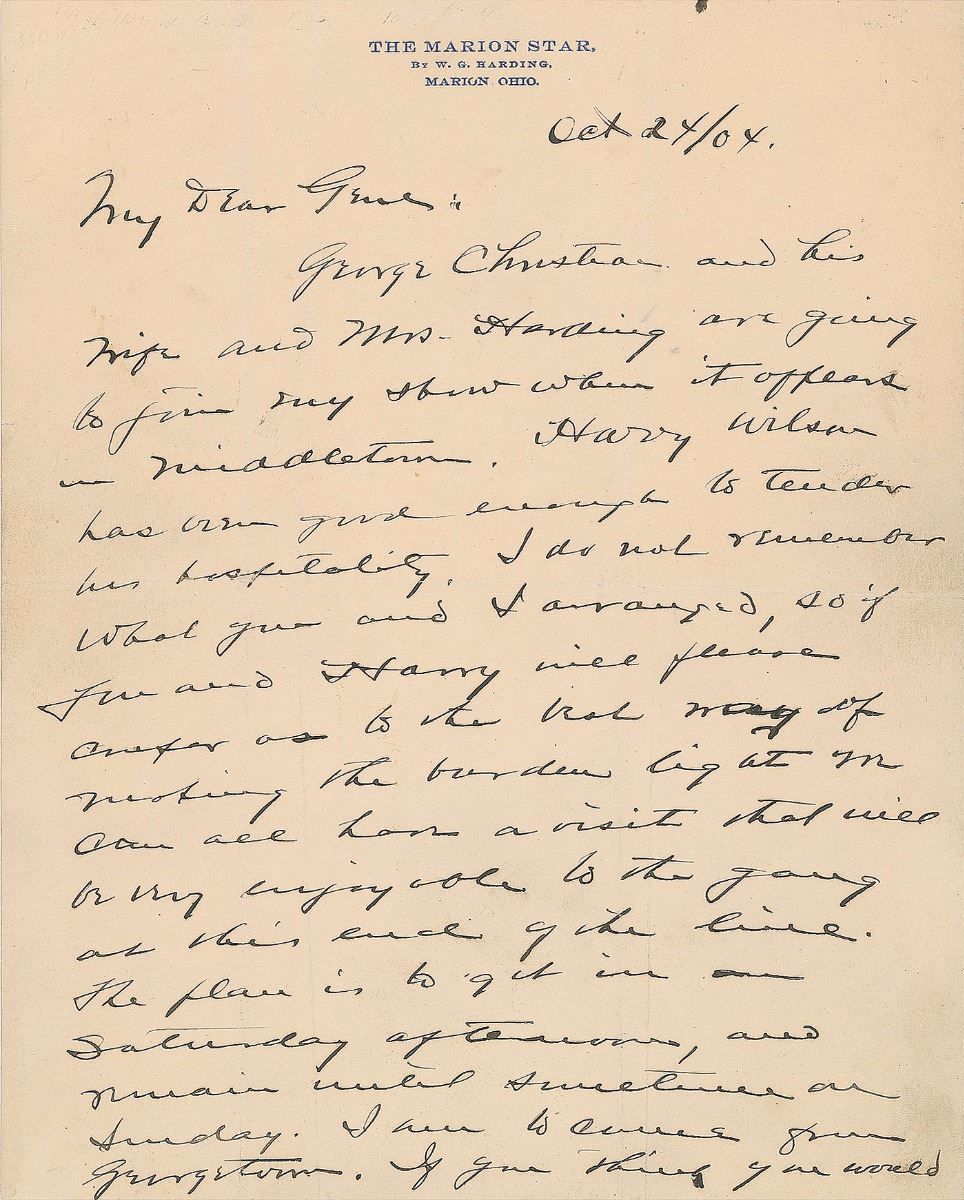 THE MARION STAR,
BY W. G. HARDING,
MARION, OHIO.
Oct 24/04.
My Dear Gene:
George Christian and his
wife and Mrs. Harding are going
to join my show when it appears
in Middletown. Harry Wilson
has been good enough to tender
his hospitality. I do not remember
what you and I arranged, so if
you and Harry will please
confer as to the best way of
making the burden light we
can all have a visit that will
be very enjoyable to the gang
at this end of the line.
The plan is to get in
Saturday afternoon, and
remain until sometime on
Sunday. I am to come from
Georgetown. If you think you would